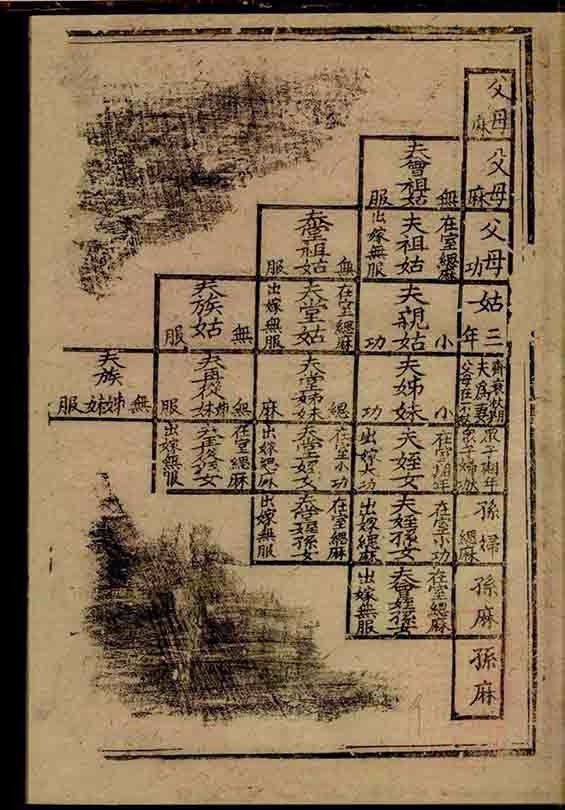 父母
麻
父母
麻
父母
功
姑
三年
齊衰杖期
夫為妻
父母在不杖
眾子期年
孫婦
緦麻
孫
麻
孫
麻
夫曾祖姑
無服
在室緦麻
夫祖姑
出嫁無服
夫親姑
小功
夫姊妹
小功
在室期年
夫姪女
出嫁大功
在室小功
夫姪孫女
出嫁緦麻
在室緦麻
夫曾姪孫女
出嫁無服
夫堂祖姑
無服
在室緦麻
夫堂姑
出嫁無服
夫堂姊妹
緦麻
在室小功
夫堂姪女
出嫁緦麻
在室緦麻
夫堂姪孫女
出嫁無服
夫族姑
無服
夫再從姊妹
無服
在室緦麻
夫再從姪女
出嫁無服
夫族姊妹
無服